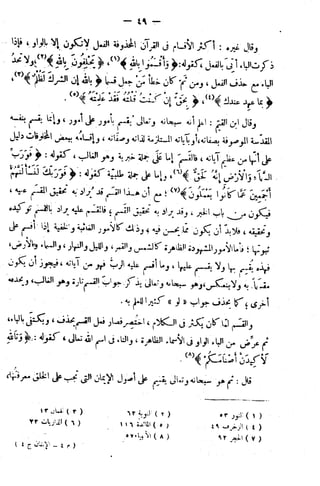 — ٤٩ —
وقال غيره : أكثر الأقسام فى القرآن المحذوفة الفعل لا تكون إلا بالواو ، فإذا
ذكرت الباء أتى بالفعل ؛ كقوله : ﴿ وَأَقْسَمُوا بِاللهِ ﴾(١) ، ﴿ يَحْلِفُونَ بِاللهِ ﴾(٢) ، ولا تجد
الباء مع حذف الفعل ، ومن ثم كان خطأً من جعل قسماً ﴿ بالله إن الشرك لظلم ﴾(٣)
﴿ بما عهد عندك ﴾(٤) ، ﴿ بِحَقٍّ إن كنتُ قلتُه فقد علمتَه ﴾(٥)
وقال ابن القيم : اعلم أنه سبحانه وتعالى يقسم بأمور على أمور ، وإنما يقسم بنفسه
المقدسة الموصوفة بصفاته ، أو بآياته المستلزمة لذاته وصفاته ، وإقسامه ببعض المخلوقات دليل
على أنها من عظيم آياته ، فالقسم إما على جملة خبرية وهو الغالب ، كقوله : ﴿ فَوَرَبِّ
السَّماءِ والأرْضِ إنَّه لَحَقٌّ ﴾(٦) ، وإما على جملة طلبية كقوله : ﴿ فَوَرَبِّكَ لَنَسْأَلَنَّهُمْ
أَجْمَعِينَ عَمَّا كَانُوا يَعْمَلُونَ ﴾(٧) ؛ مع أن هذا القسم قد يراد به تحقيق القسم عليه ،
فيكون من باب الخبر ، وقد يراد به تحقيق القسم ؛ فالقسم عليه يراد بالقسم توكيده
وتحقيقه ، فلابد أن يكون مما يحسن فيه ، وذلك كالأمور الغائبة والخفية إذا أقسم على
ثبوتها ؛ فأما الأمور المشهودة الظاهرة كالشمس والقمر ، والليل والنهار ، والسماء والأرض ،
فهذه يُقسِم بها ولا يقسم عليها ، وما أقسم عليه الربّ فهو من آياته ، فيجوز أن يكون
مقسماً به ولا ينعكس ، وهو سبحانه وتعالى يذكر جواب القسم تارة وهو الغالب ، ويحذفه
أخرى ؛ كما يحذف جواب « لو » كثيراً للعلم به .
والقسم لمّا كان يكثر فى الكلام ، اختصر فصار فعل القسم يحذف ، ويكتفى بالباء ،
ثم عوّض من الباء الواو فى الأسماء الظاهرة ، والتاء فى اسم الله تعالى ، كقوله : ﴿ وَتَاللهِ
لَأَكِيدَنَّ أَصْنَامَكُمْ ﴾(٨) .
قال : ثم هو سبحانه وتعالى يقسم على أصول الإيمان التى تجب على الخلق معرفتها ؛
(١) النور ٥٣ (٢) التوبة ٦٢ (٣) لقمان ١٣
(٤) الزخرف ٤٩ (٥) المائدة ١١٦ (٦) الذاريات ٢٣
(٧) الحجر ٩٢ (٨) الأنبياء ٥٧
( م ٤ — الإتقان ج ٤ )